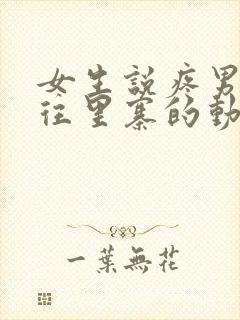 女生說疼男
往里寨的動
一葉無花